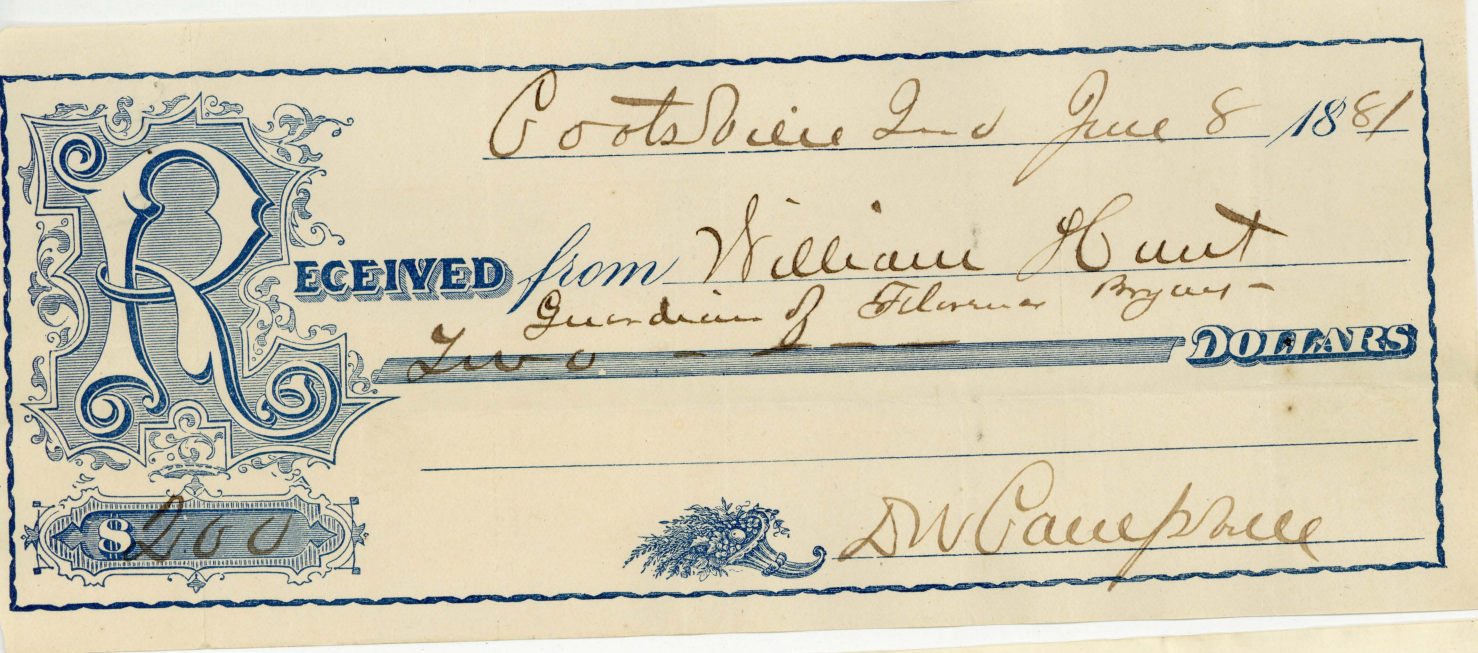 Cootsville Ind June 8 1881
RECEIVED from William Hunt
Guardian of Florence Bryant
Two DOLLARS
$2.00
DW Campbell